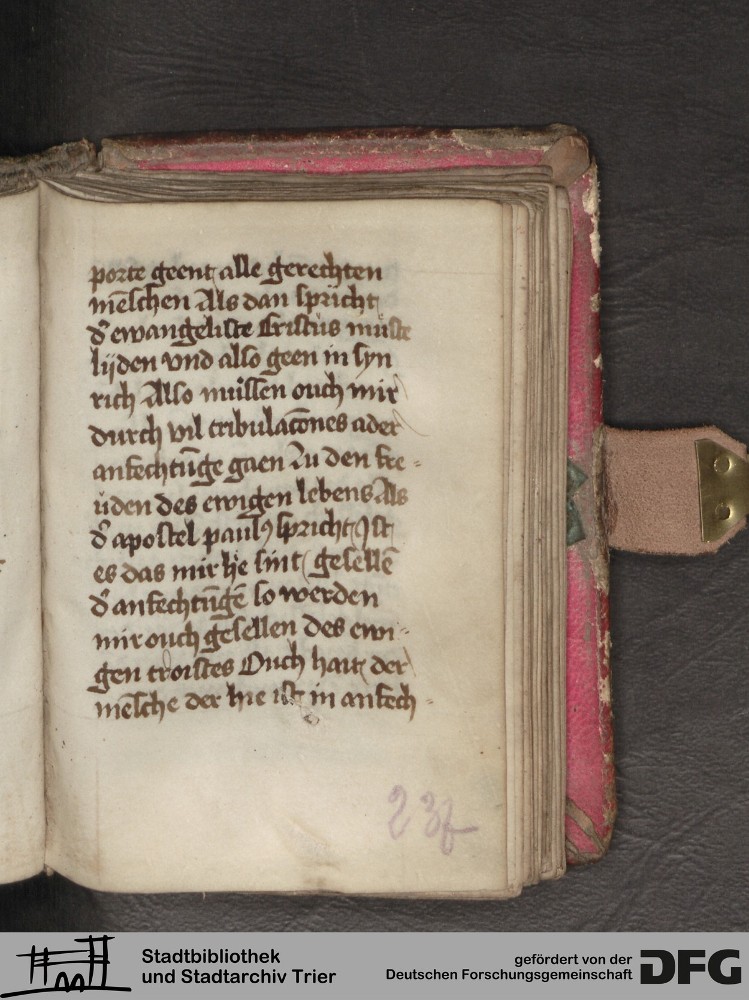 porte geent alle gerechten
mēschen Als dan spricht
d᾽ ewangeliste Cristus muste
lijden vnd also geen in syn
rich Also mussen ouch mir
durch vil tribulacōnes ader
anfechtūge gaen zu den fre-
uden des ewigen lebens Als
d᾽ apostel paulꝰ spricht Ist
es das mir hie sint gesellē
d᾽ anfechtūgē so werden
mir ouch gesellen des ewi-
gen troistes Ouch hait der
mēsche der hie ist in anfech-
Stadtbibliothek
und Stadtarchiv Trier
gefördert von der
Deutschen Forschungsgemeinschaft
DFG